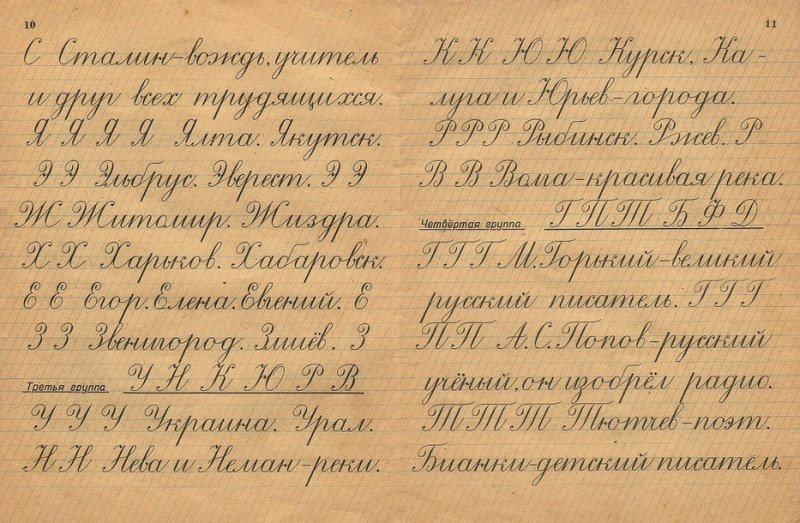 10
С Сталин-вождь, учитель
и друг всех трудящихся.
Я Я Я Я Ялта. Якутск.
Э Э Эльбрус. Эверест. Э Э
Ж Житомир. Жиздра.
Х Х Харьков. Хабаровск.
Е Е Егор. Елена. Евгений. Е
З З Звенигород. Змиёв. З
Третья группа У Н К Ю Р В
У У У Украина. Урал.
Н Н Нева и Неман-реки.
11
К К Ю Ю Курск, Ка-
луга и Юрьев-города.
Р Р Р Рыбинск. Ржев. Р
В В Волга-красивая река.
Четвёртая группа Г П Т Б Ф Д
Г Г Г М. Горький-великий
русский писатель. Г Г Г
П П А. С. Попов-русский
учёный, он изобрёл радио.
Т Т Т Тютчев-поэт.
Бианки-детский писатель.